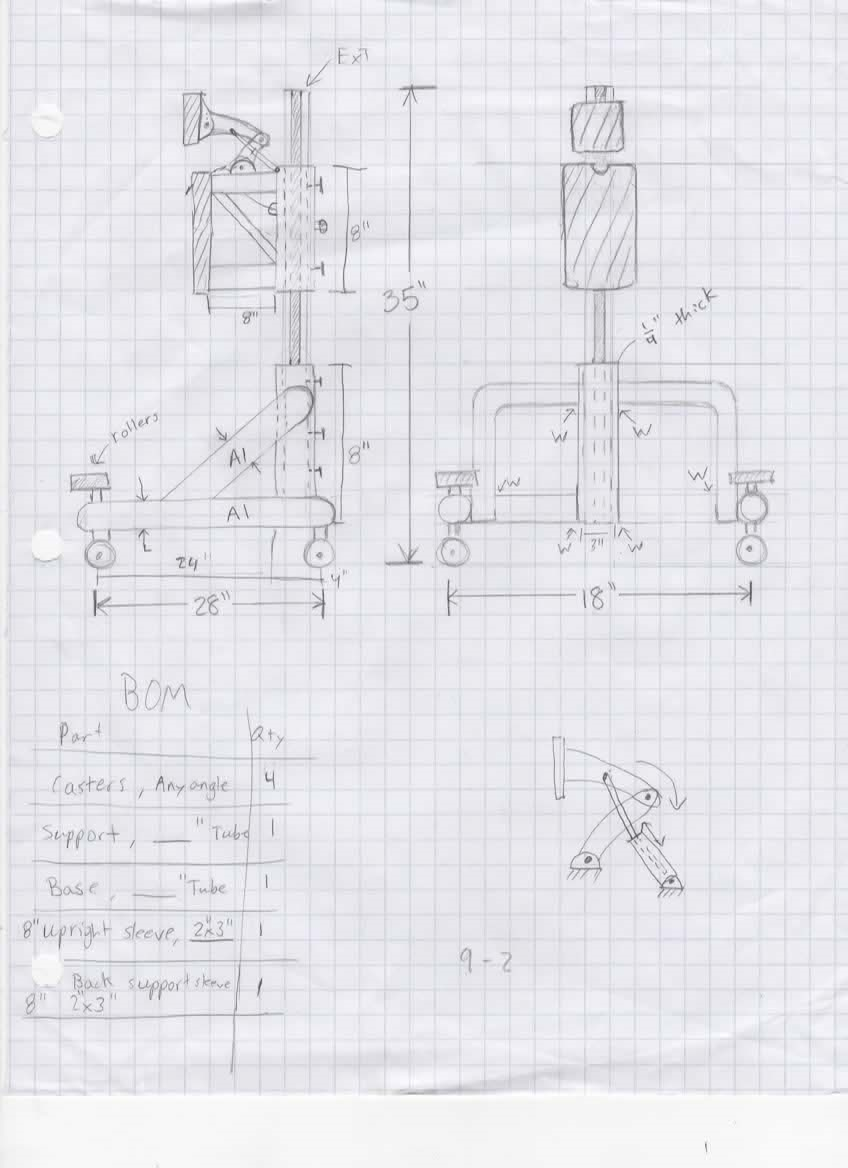 Ext
8"
35"
8"
1/4" thick
rollers
8"
Al
W
W
W
W
Al
24"
4"
W
3"
W
28"
18"
BOM
Part Qty
Casters, Any angle 4
Support, ___" Tube 1
Base, ___" Tube 1
8" Upright sleeve, 2"x3" 1
Back support sleeve 1
8" 2"x3"
9-2